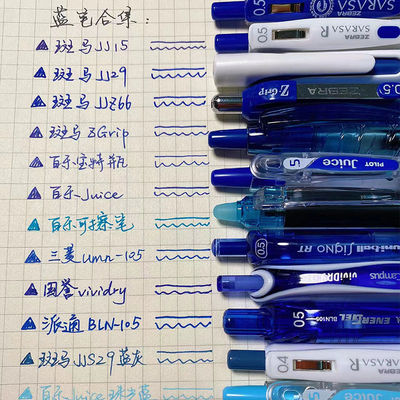 蓝色合集:
斑马JJ15
斑马JJ29
斑马JJZ66
斑马ZGrip
百乐宝特瓶
百乐Juice
百乐可擦笔
三菱umn-105
国誉vividry
派通BLN-105
斑马JJS29蓝灰
百乐Juice珠光蓝
0.5 ZEBRA SARASA
0.5 ZEBRA SARASA R
Z-Grip ZEBRA 0.5
PILOT Juice 05
0.5 uni-ball Signo RT
ViViDRY Campus
0.5 BLN105 ENERGEL
0.4 ZEBRA SARASA R